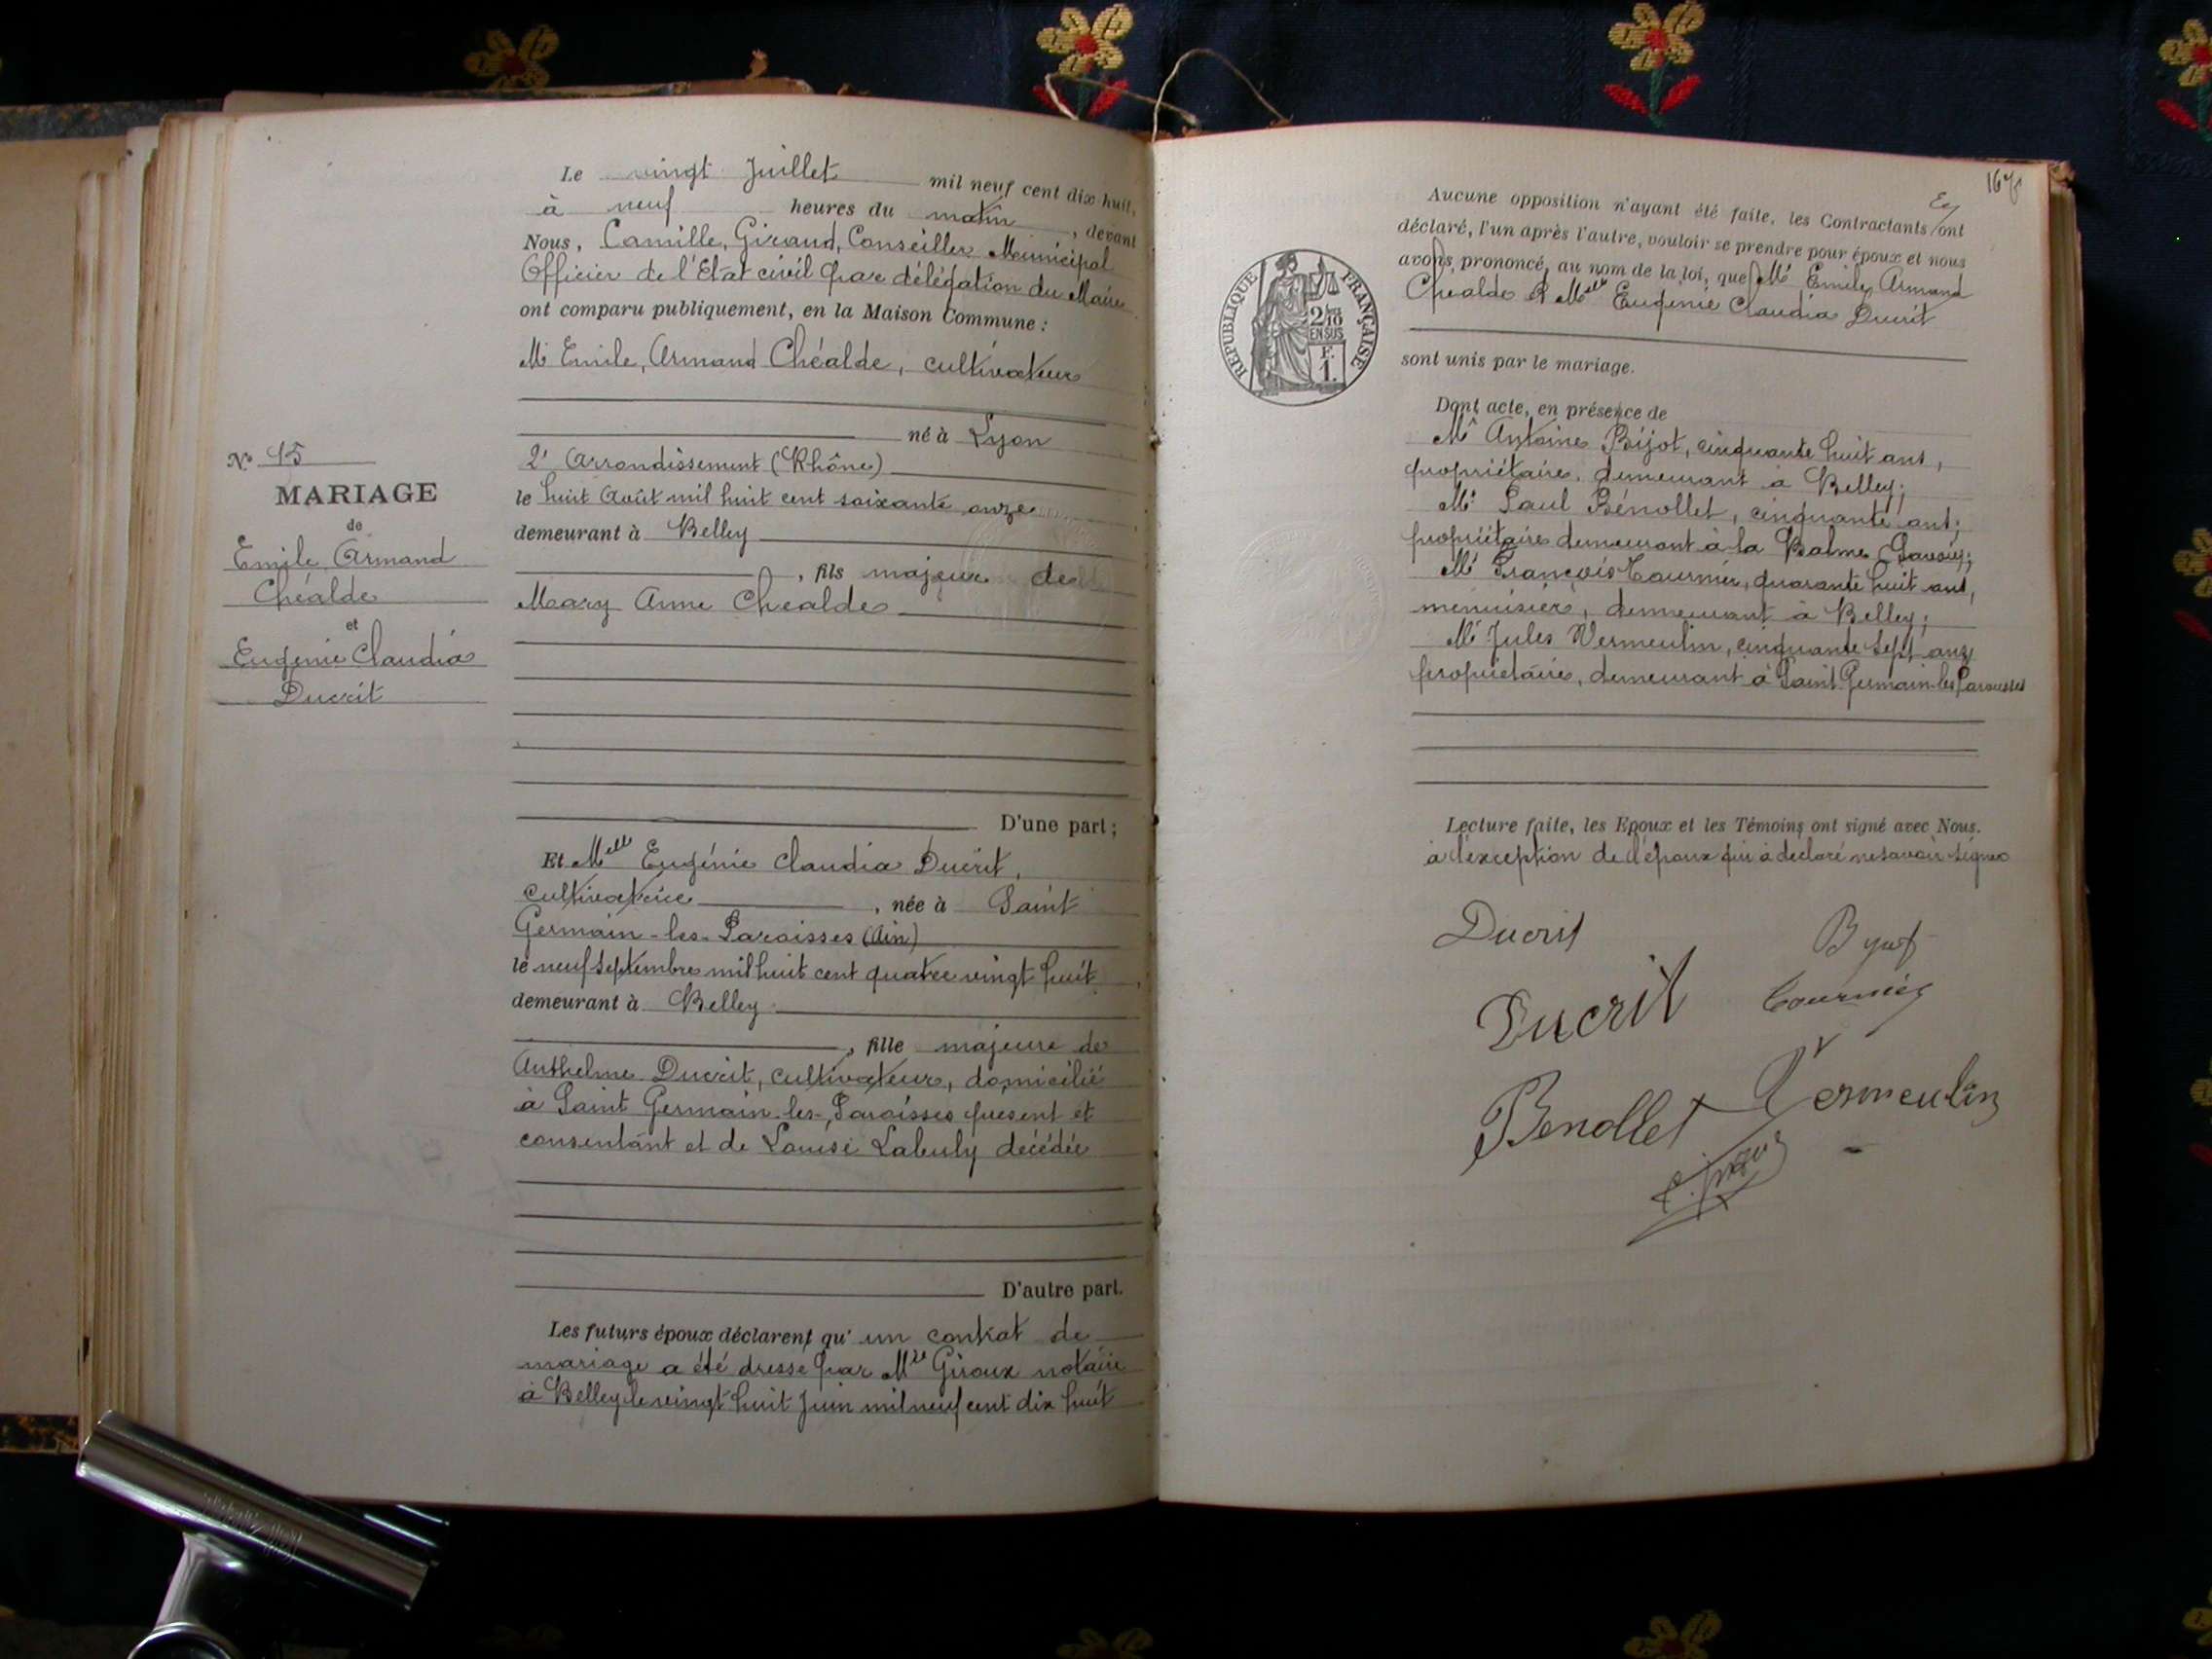 Le vingt Juillet mil neuf cent dix huit,
à neuf heures du matin, devant
Nous, Camille, Giraud, Conseiller Municipal
Officier de l'Etat civil par délégation du Maire
ont comparu publiquement, en la Maison Commune :
Mr Emile, Armand Chéalde, cultivateur
né à Lyon
2e Arrondissement (Rhône)
le huit Août mil huit cent soixante onze
demeurant à Belley
, fils majeur de
Mary Anne Chealde
D'une part ;
N° 15
MARIAGE
de
Emile Armand
Chéalde
et
Eugénie Claudia
Ducrit
Et Melle Eugénie Claudia Ducrit,
cultivatrice, née à Saint
Germain-les-Paroisses (Ain)
le neuf Septembre mil huit cent quatre vingt huit
demeurant à Belley
, fille majeure de
Anthelme Ducrit, cultivateur, domicilié
à Saint Germain-les-Paroisses présent et
consentant et de Louise Labuly décédée
D'autre part.
Les futurs époux déclarent qu'un contrat de
mariage a été dressé par Me Giroux notaire
à Belley le vingt huit Juin mil neuf cent dix huit
Aucune opposition n'ayant été faite, les Contractants ont
déclaré, l'un après l'autre, vouloir se prendre pour époux et nous
avons prononcé, au nom de la loi, que Mr Emile, Armand
Chealde & Melle Eugénie Claudia Ducrit
sont unis par le mariage.
RÉPUBLIQUE FRANÇAISE
2/10
EN SUS
F.
1.
Dont acte, en présence de
Mr Antoine Bijot, cinquante huit ans,
propriétaire, demeurant à Belley ;
Mr Paul Bénollet, cinquante ans,
propriétaire demeurant à la Balme (Savoie) ;
Mr François Tournier, quarante huit ans,
menuisier, demeurant à Belley ;
Mr Jules Vermeulin, cinquante sept ans
propriétaire, demeurant à Saint Germain-les-Paroisses
Lecture faite, les Epoux et les Témoins ont signé avec Nous.
à l'exception de l'époux qui a déclaré ne savoir signer
Ducrit
Ducrit
Tournier
Benollet
Vermeulin